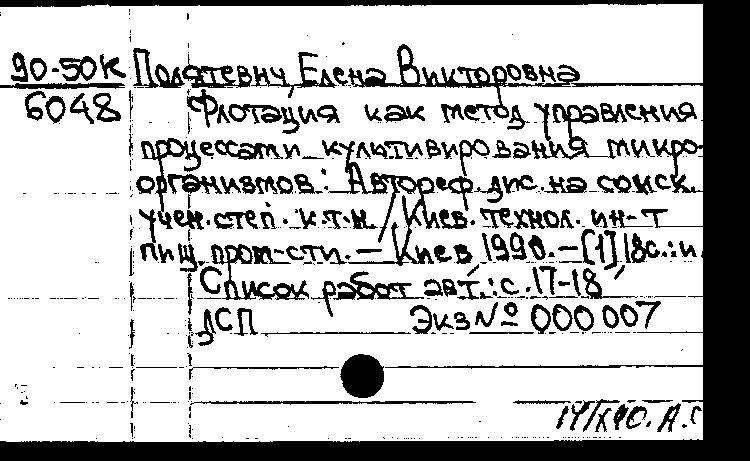 90-50К Полятевич, Елена Викторовна
6048 Флотация как метод управления
процессами культивирования микро-
организмов: Автореф. дис. на соиск.
учен. степ. к.т.н. / Киев. технол. ин-т
пищ. пром-сти. — Киев 1990. — [1] 18с.: и.
Список работ авт.: с. 17-18
ДСП Экз № 000007
А.С